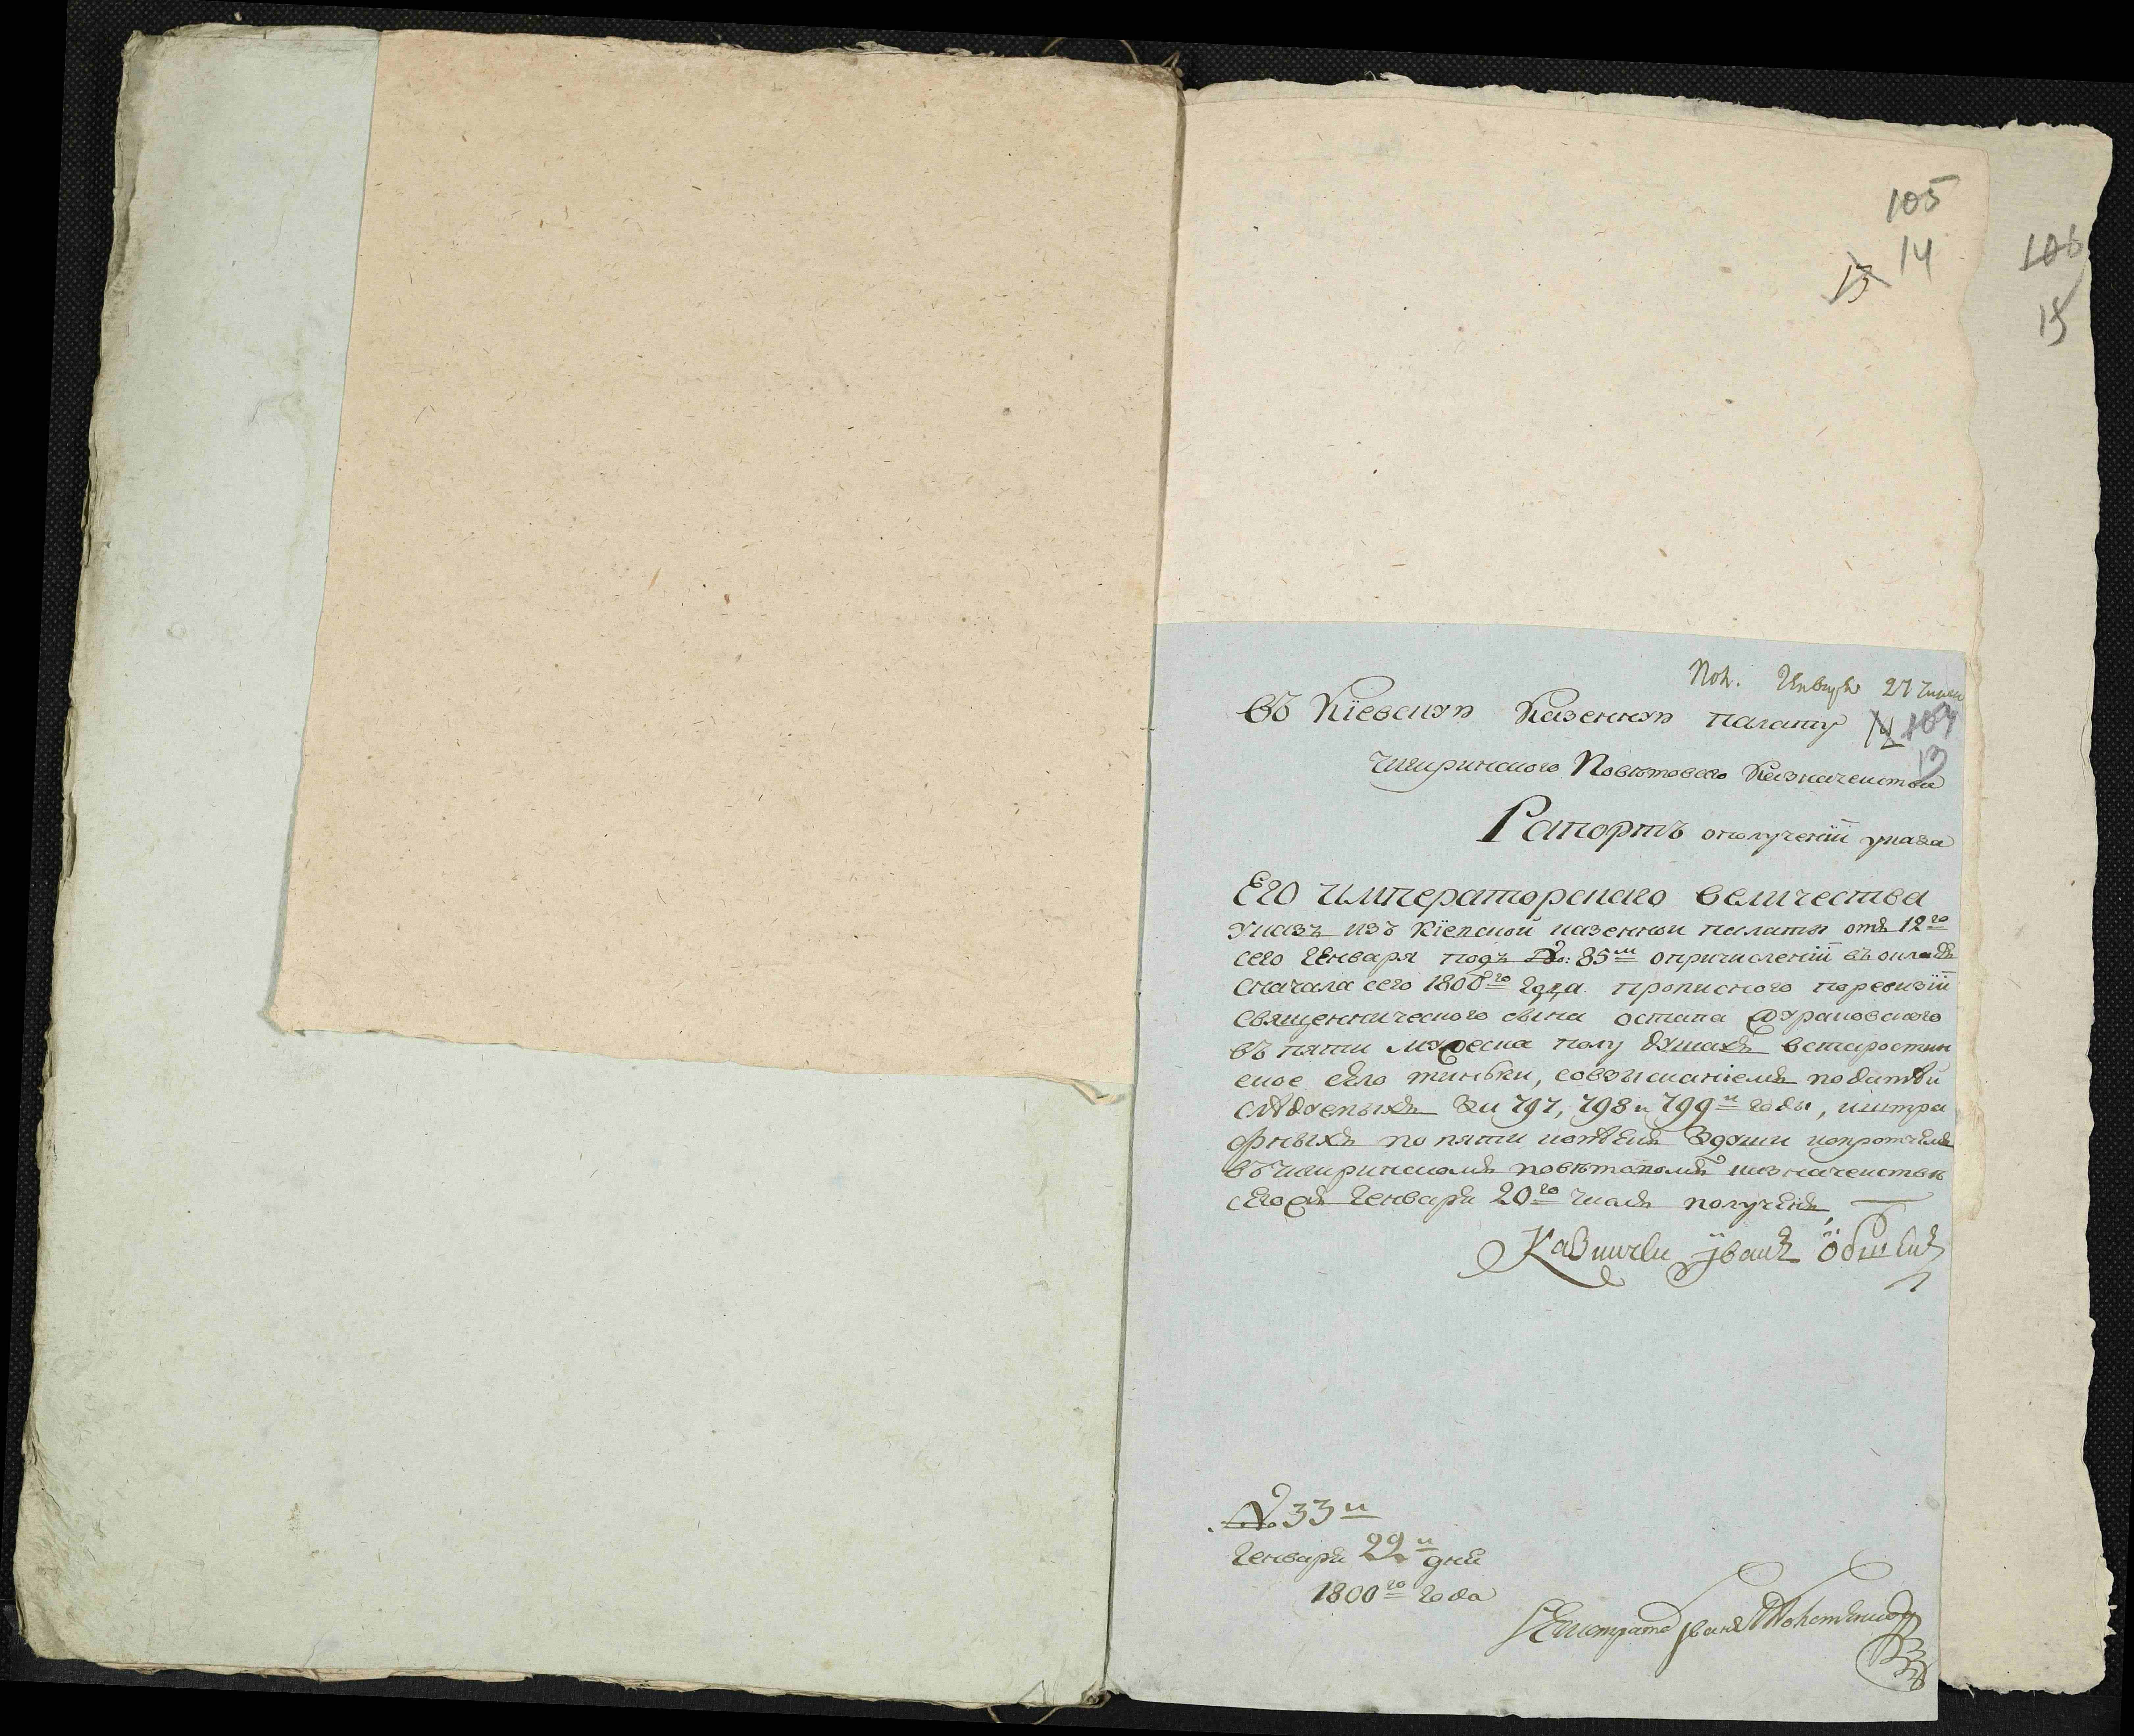 105
14
13
106
15
Пол. Генваря 27 числа
Въ Кїевскую Казенную палату 14 104
13
Чигиринского Повѣтового Казначейства
Рапортъ ополученїи указа
Его Императорскаго величества
указъ изъ Кїевской казенной палаты отъ 12го
сего Генваря подъ №: 85м опричисленїи въ окладъ
сначала сего 1800го года прописного поревизїи
священнического сына остапа
въ пяти мужеска полу душахъ встаростин
ское село тиньки, совзысканїемъ податей
слѣдуемыхъ за 797, 798 и 799й годы, иштра
фныхъ по пяти копѣекъ здуши
въ чигиринскомъ повѣтовомъ казначействѣ
Генваря 20го числа полученъ,
Казначей Їванъ
№ 33й
Генваря 22й дня
1800го года
Їванъ